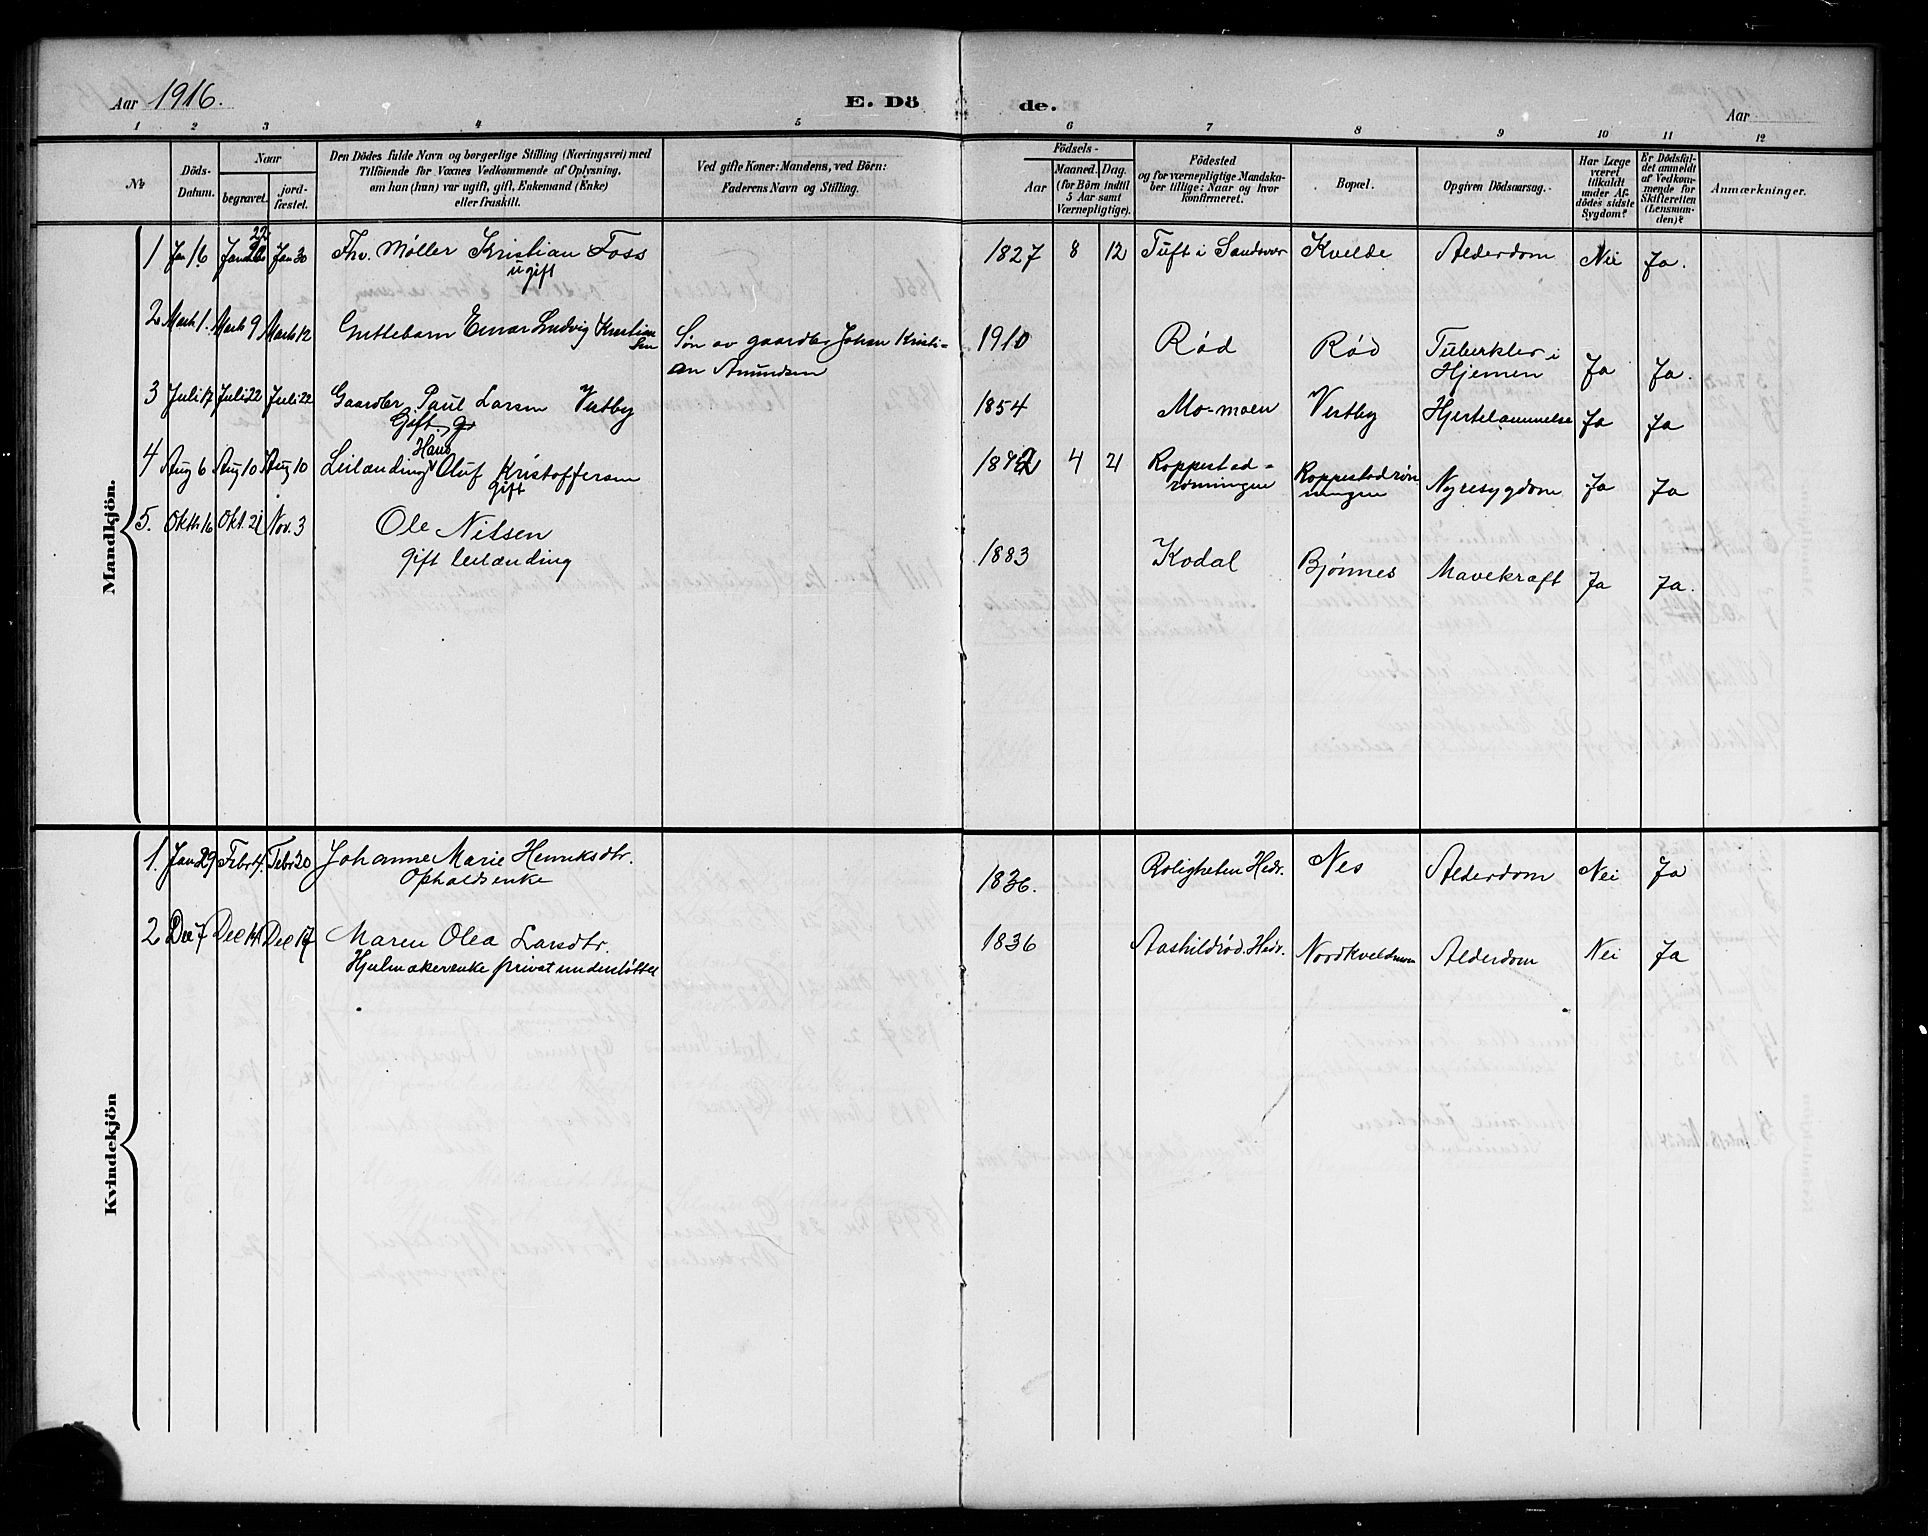 Aar 1916.
E. Dö
de.
Aar
1 2 3 4 5 6 7 8 9 10 11 12
No
Döds-
Datum.
Naar
begravet.
jord-
fæstet.
Den Dödes fulde Navn og borgerlige Stilling (Næringsvei) med
Tilföiende for Voxnes Vedkommende af Oplysning,
om han (hun) var ugift, gift, Enkemand (Enke)
eller fraskilt.
Ved gifte Koner: Mandens, ved Börn:
Faderens Navn og Stilling.
Födsels-
Aar
Maaned. Dag.
(for Börn indtil
5 Aar samt
Værnepligtige).
Födested
og for værnepligtige Mandska-
ber tillige: Naar og hvor
konfirmeret.
Bopæl.
Opgiven Dödsaarsag.
Har Læge
været
tilkaldt
under Af-
dödes sidste
Sygdom?
Er Dödsfal-
det anmeldt
af Vedkom-
mende for
Skifteretten
(Lensman-
den)?
Anmærkninger.
Mandkjön.
1 Jan 16 Jan 22 Jan 30 Fhv. Møller Kristian Foss 1827 8 12 Tuft i Sandsvær Kvelde Alderdom Nei Ja.
ugift
2 Marts 1. Marts 9 Marts 12 Guttebarn Einar Ludvig Kristian
sen
Søn av gaardbr Johan Kristi-
an Amundsen
1910 Rød Rød Tuberkler i
Hjernen Ja Ja.
3 Juli 17 Juli 22 Juli 22 Gaardbr Paul Larsen Vestby 1854 Mo-moen Vestby Hjertelammelse Ja Ja
Gift.
4 Aug 6 Aug 10 Aug 10 Leilænding Hans Oluf Kristoffersen 4 21 Roppestad-
rønningen Roppestadrøn
ningen Nyresygdom Ja Ja
Gift
5. Oktb 16 Okt. 21 Nov. 3 Ole Nilsen
gift leilænding
1883 Kodal Bjønnes Mavekræft Ja Ja.
Kvindekjön
1. Jan 29 Febr 4. Febr 20 Johanne Marie Henriksdtr.
Opholdsenke
1836. Roligheten Hedr. Nes Alderdom Nei Ja
2 Dec 7 Dec 14 Dec 17 Maren Olea Larsdtr.
Hjulmakerenke privat understøttet
1836 Aashildrød. Hedr. Nordkveldemoen Alderdom Nei Ja